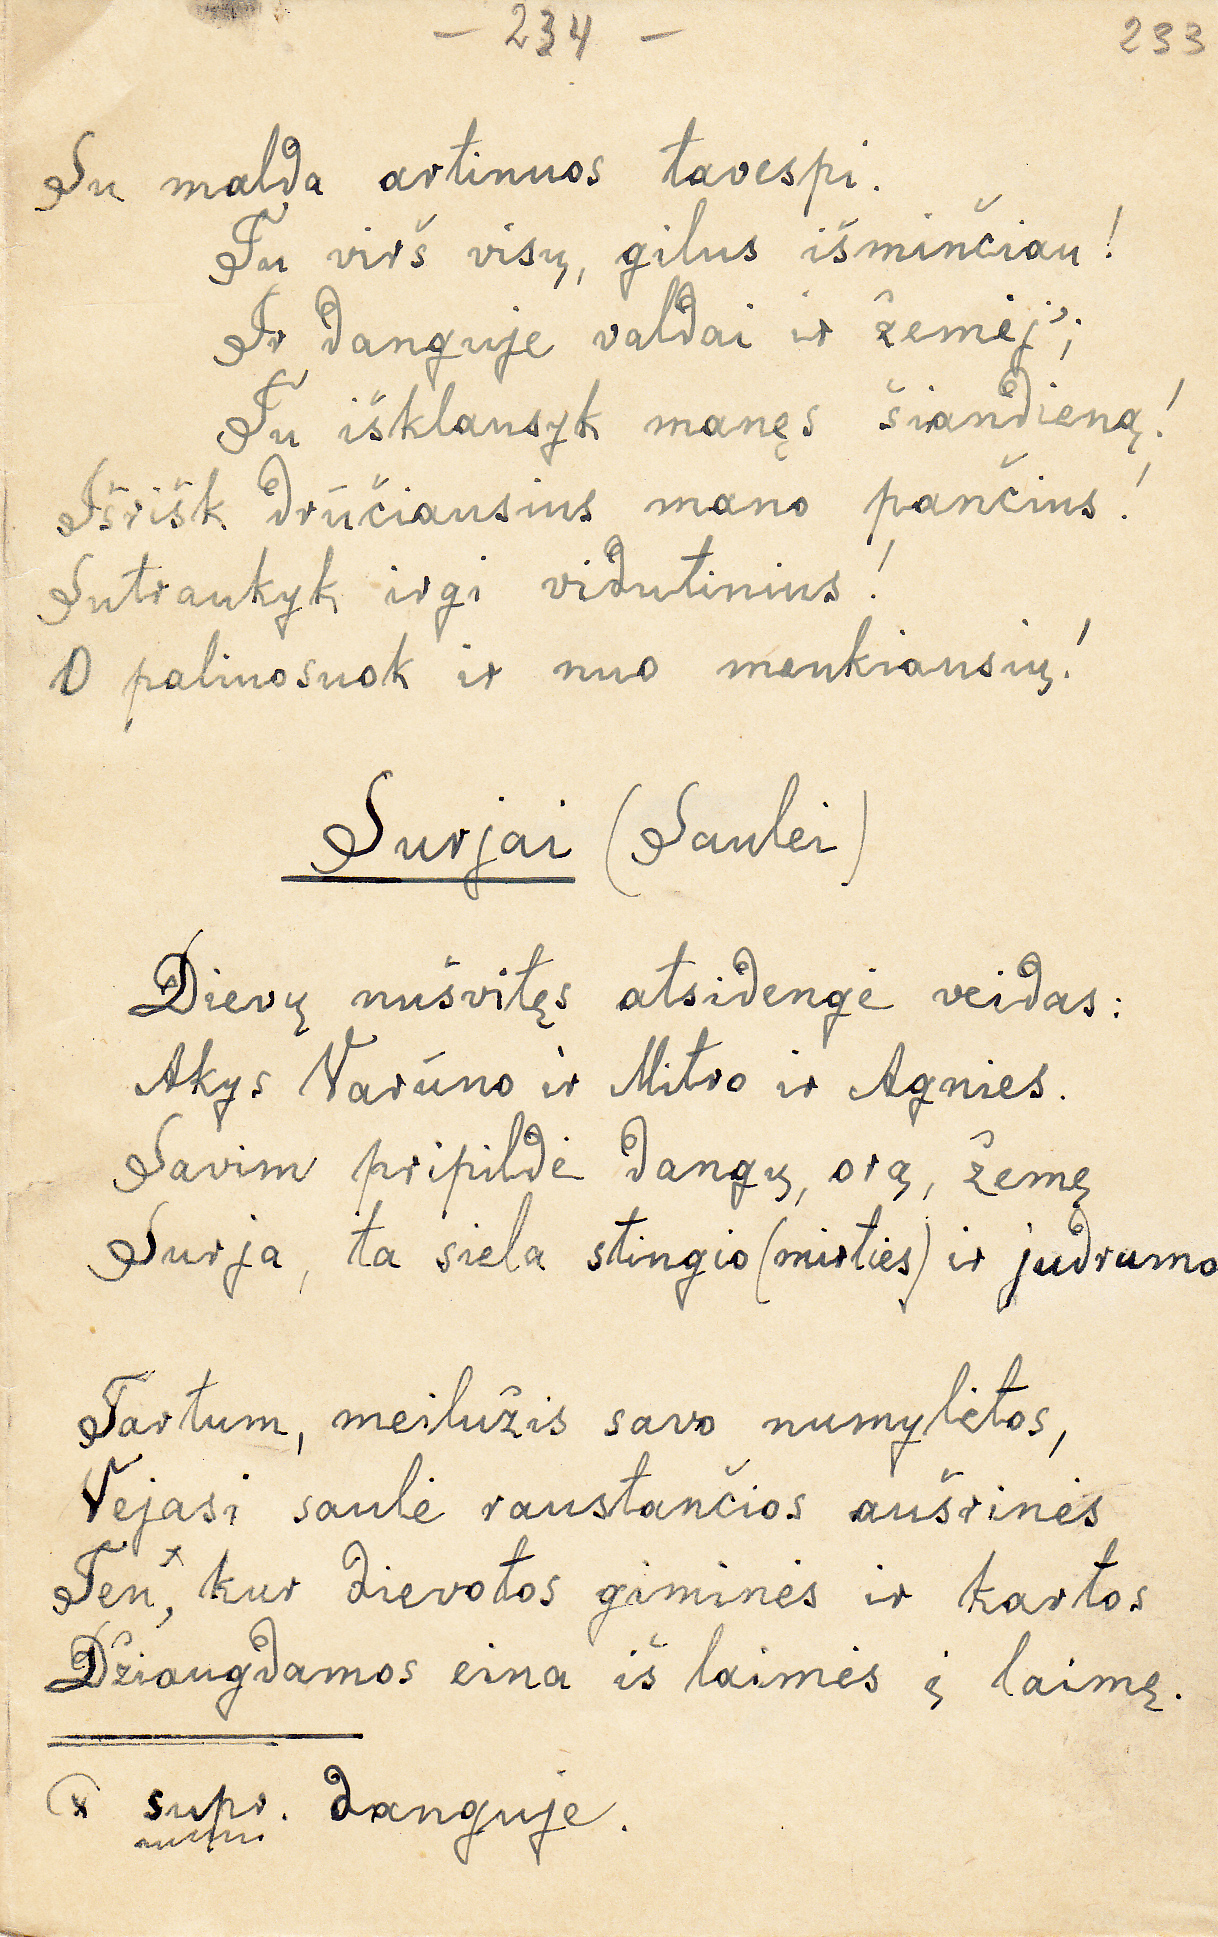 – 234 –
233
Su malda artinuos tavespi.
Tu virš visų, gilus išminčiau!
Ir danguje valdai ir žemėj';
Tu išklausyk manęs šiandieną!
Išrišk drūčiausius mano pančius!
Sutraukyk irgi vidutinius!
O paliuosuok ir nuo menkiausių!
Surjai (Saulei)
Dievų nušvitęs atsidengė veidas:
Akys Varūno ir Mitro ir Agnies.
Savim pripildė dangų, orą, žemę
Surja, ta siela stingio (mirties) ir judrumo
Tartum, meilužis savo numylėtos,
Vejasi saulė raustančios aušrinės
Ten x, kur dievotos giminės ir kartos
Džiaugdamos eina iš laimės į laimę.
x supr. danguje.